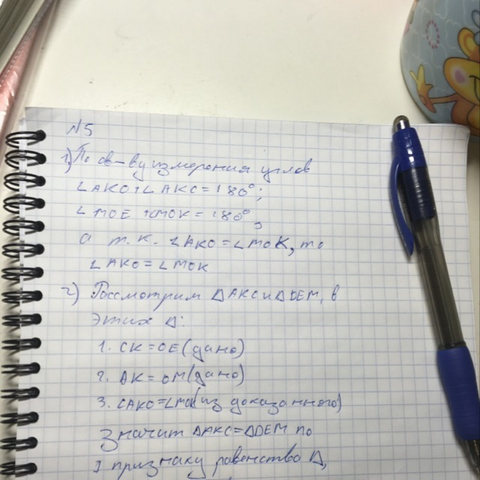 N5
1) По св-ву измерения углов
∠AKO+∠AKC=180°;
∠MOE+∠MOK=180°,
а т.к. ∠AKO=∠MOK, то
∠AKO=∠MOK
2) Рассмотрим ΔAKC и ΔOEM, в
этих Δ:
1. CK=OE(дано)
2. AK=OM(дано)
3. ∠AKO=∠MO(из доказанного)
Значит ΔAKC=ΔOEM по
I признаку равенства Δ,